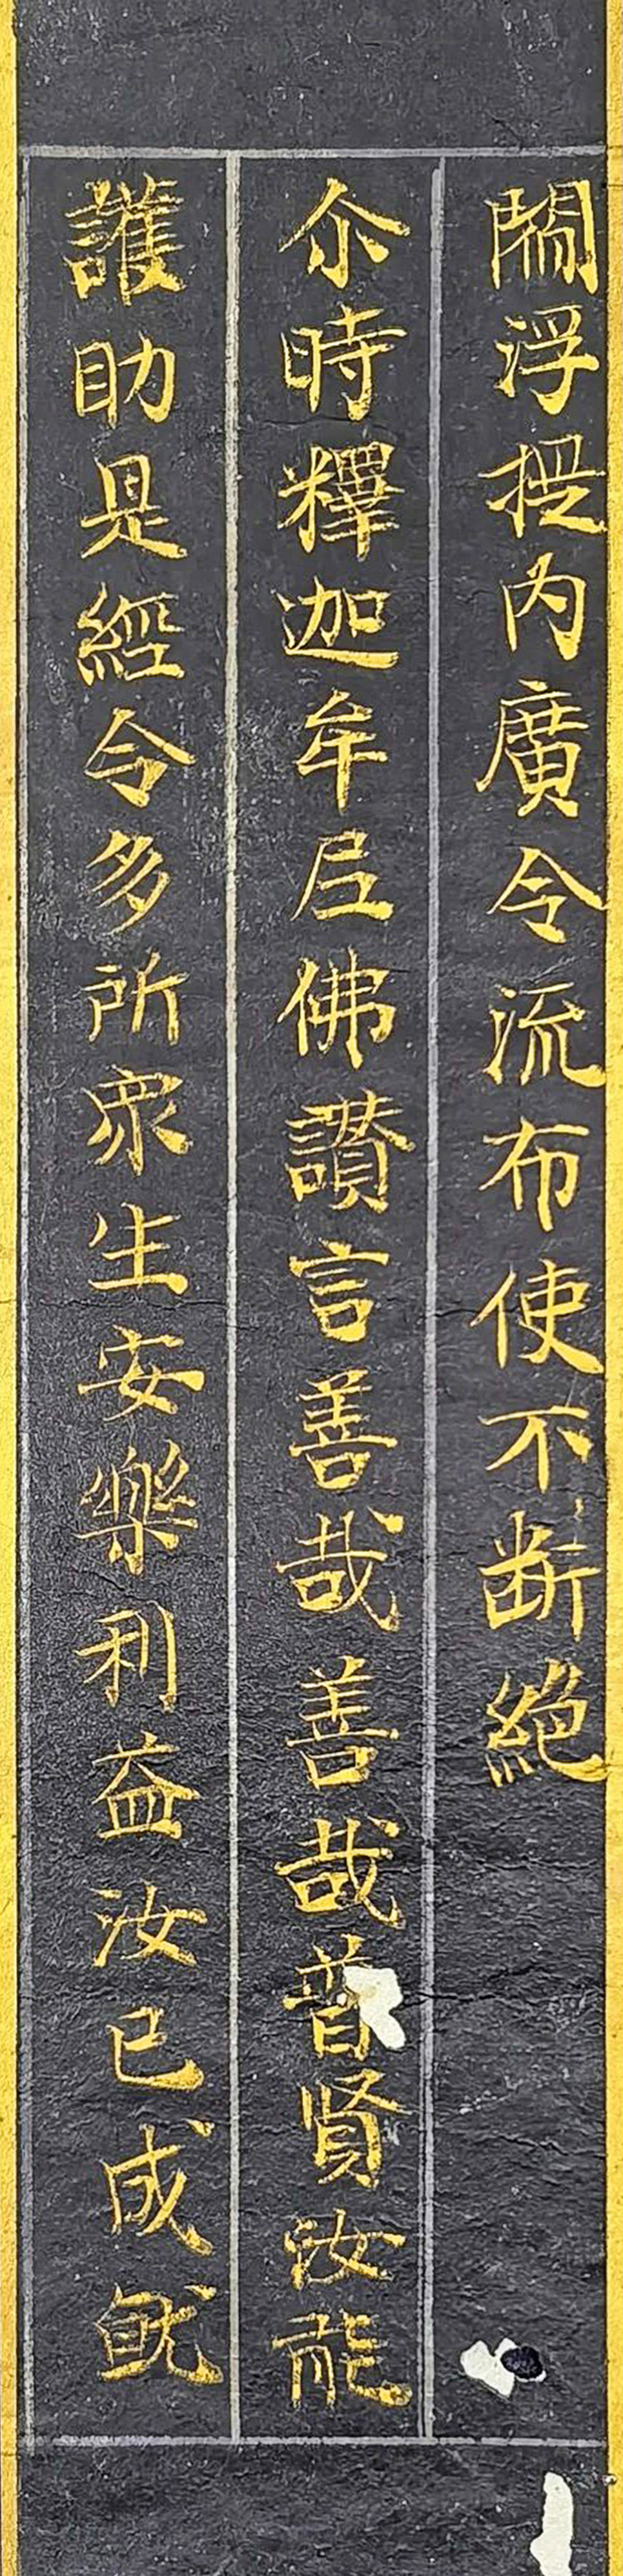 閻浮提内廣令流布使不断絶
尒時釋迦牟尼佛讃言善哉善哉普賢汝能
護助是經令多所衆生安樂利益汝已成就